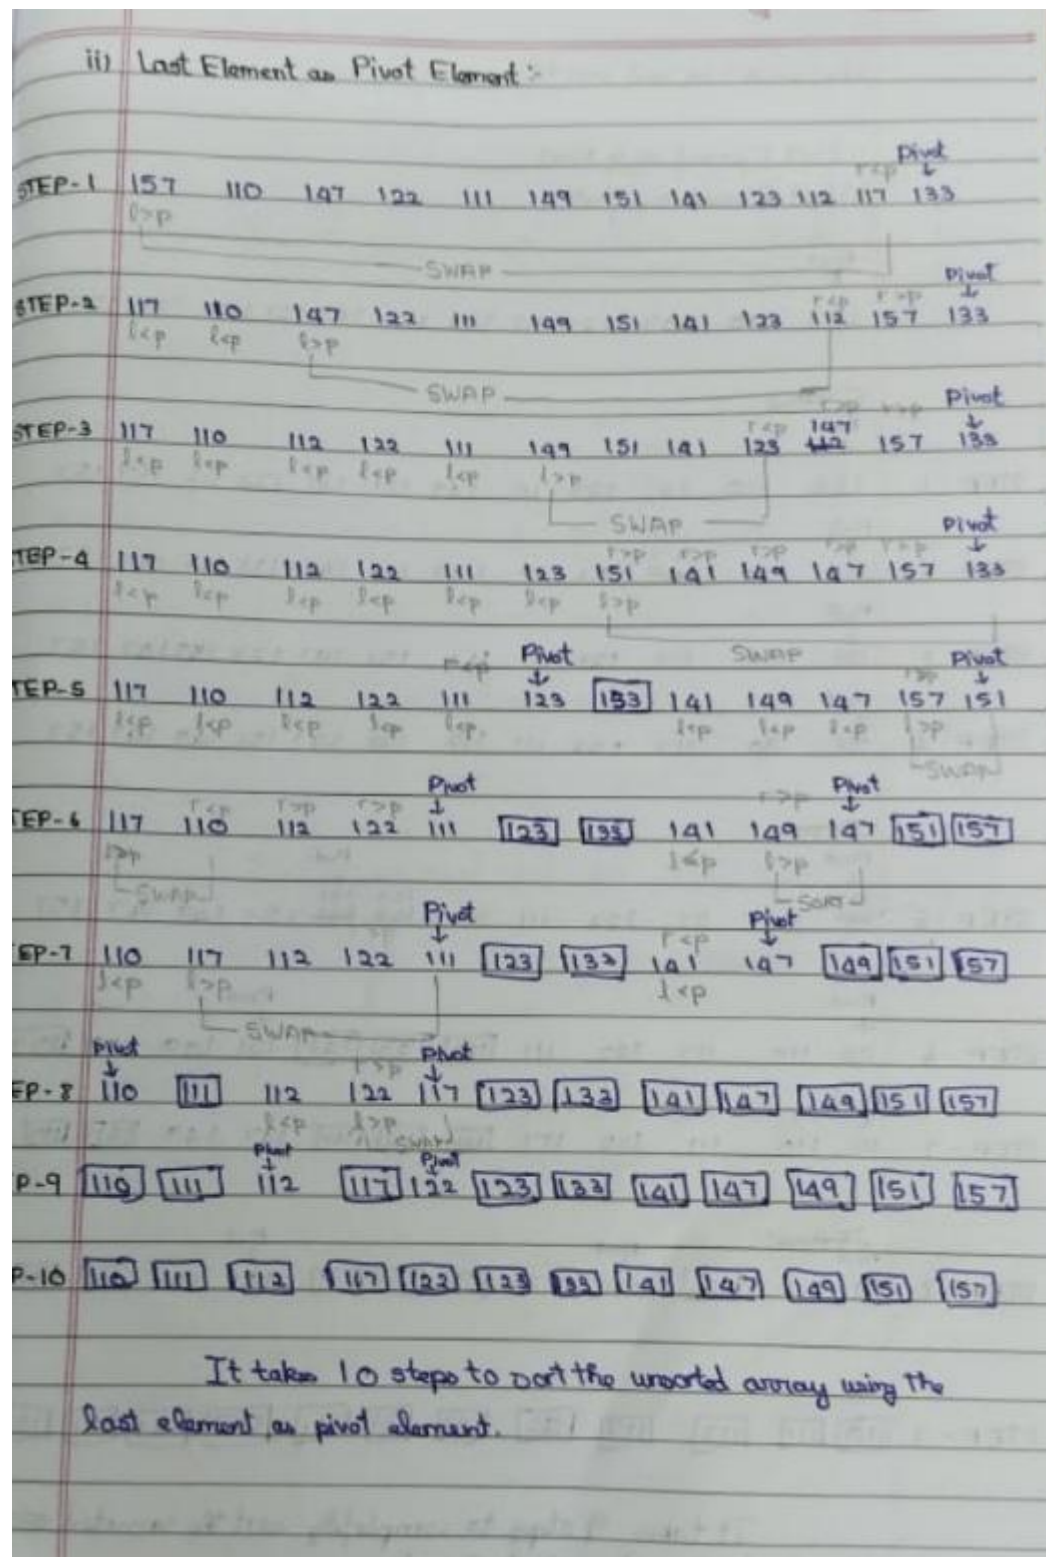 ii) Last Element as Pivot Element :-
Pivot
r<p ↓
STEP-1 157 110 147 122 111 149 151 141 123 112 117 133
l>p
SWAP
Pivot
r<p r>p ↓
STEP-2 117 110 147 122 111 149 151 141 123 112 157 133
l<p l<p l>p
SWAP
Pivot
r<p r>p r>p ↓
147
STEP-3 117 110 112 122 111 149 151 141 123 112 157 133
l<p l<p l<p l<p l<p l>p
SWAP
Pivot
r>p r>p r>p r>p r>p ↓
TEP-4 117 110 112 122 111 123 151 141 149 147 157 133
l<p l<p l<p l<p l<p l<p l>p
SWAP
Pivot Pivot
r<p ↓ r>p ↓
TEP-5 117 110 112 122 111 123 133 141 149 147 157 151
l<p l<p l<p l<p l<p l<p l<p l<p l>p
SWAP
Pivot Pivot
r<p r>p r>p ↓ r>p ↓
TEP-6 117 110 112 122 111 123 133 141 149 147 151 157
l>p l<p l>p
SWAP
Pivot Pivot
↓ r<p ↓
EP-7 110 117 112 122 111 123 133 141 147 149 151 157
l<p l>p l<p
SWAP
Pivot Pivot
↓ r>p ↓
EP-8 110 111 112 122 117 123 133 141 147 149 151 157
l<p l>p
SWAP
Pivot Pivot
↓ ↓
P-9 110 111 112 117 122 123 133 141 147 149 151 157
P-10 110 111 112 117 122 123 133 141 147 149 151 157
It takes 10 steps to sort the unsorted array using the
last element, as pivot element.